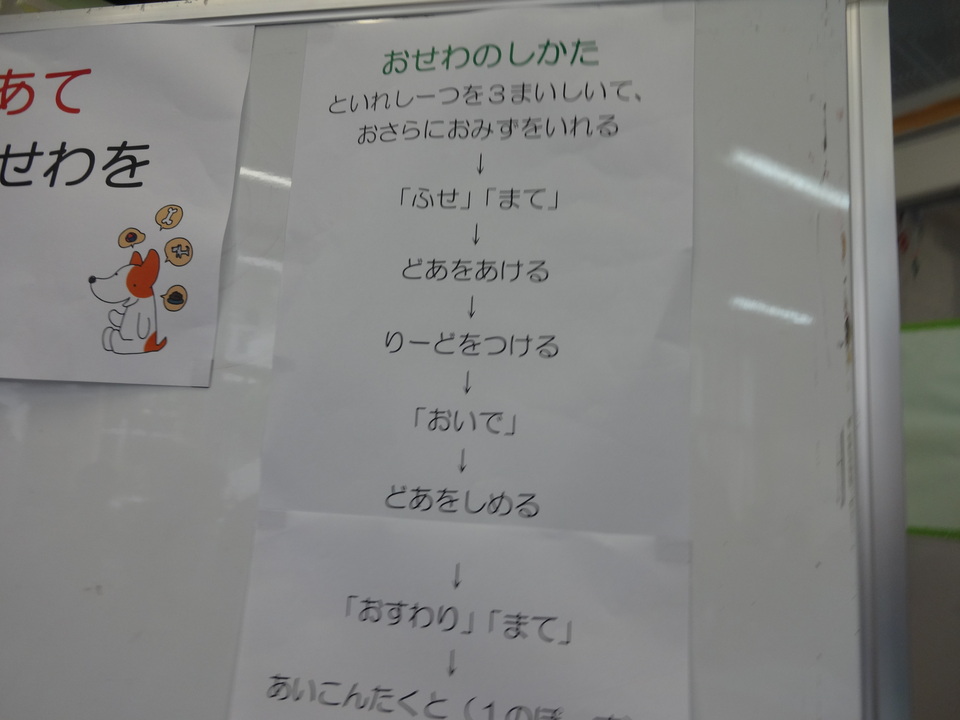 あて
せわを
おせわのしかた
といれしーつを３まいしいて、
おさらにおみずをいれる
↓
「ふせ」「まて」
↓
どあをあける
↓
りーどをつける
↓
「おいで」
↓
どあをしめる
↓
「おすわり」「まて」
↓
あいこんたくと（１のぽ